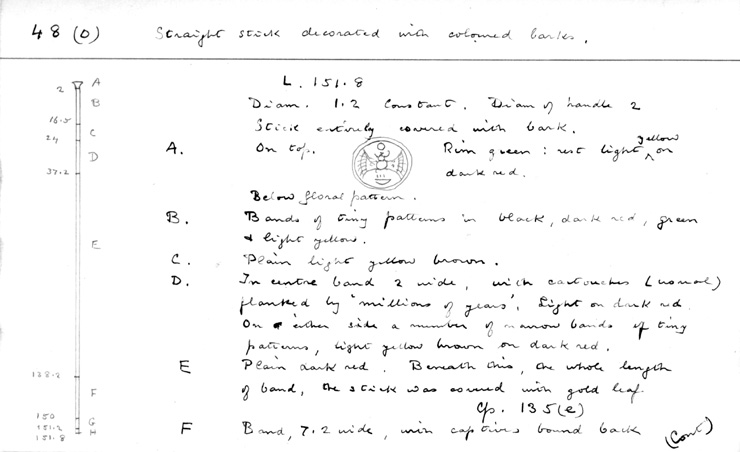 48 (O) Straight stick decorated with coloured barks.
L. 151.8
Diam. 1.2 Constant. Diam of handle 2
Stick entirely covered with bark.
A. On top. Rim green : rest light yellow on
dark red.
Below floral pattern.
B. Bands of tiny patterns in black, dark red, green
+ light yellow.
C. Plain light yellow brown.
D. In centre band 2 wide, with cartouches (usual)
flanked by 'millions of years'. Light on dark red.
On either side a number of narrow bands of tiny
patterns, light yellow brown on dark red.
E Plain dark red. Beneath this, the whole length
of band, the stick was covered with gold leaf.
Cp. 135(e)
F Band, 7.2 wide, with captives bound back
(Cont)
2 A
B
16.5
24 C
D
37.2
E
138.2
F
150 G
151.2 H
151.8